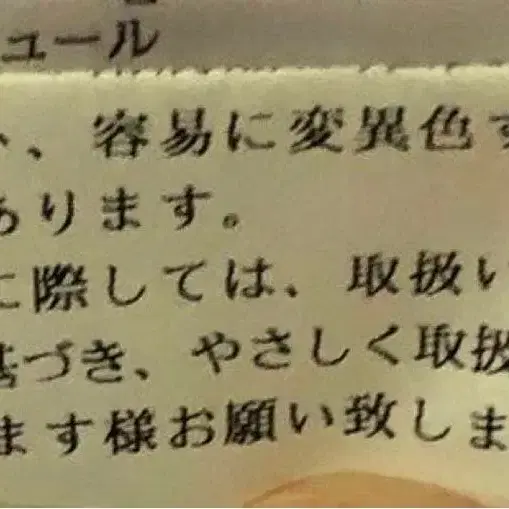 ュール
、容易に変異色す
あります。
に際しては、取扱い
基づき、やさしく取扱
ます様お願い致しま